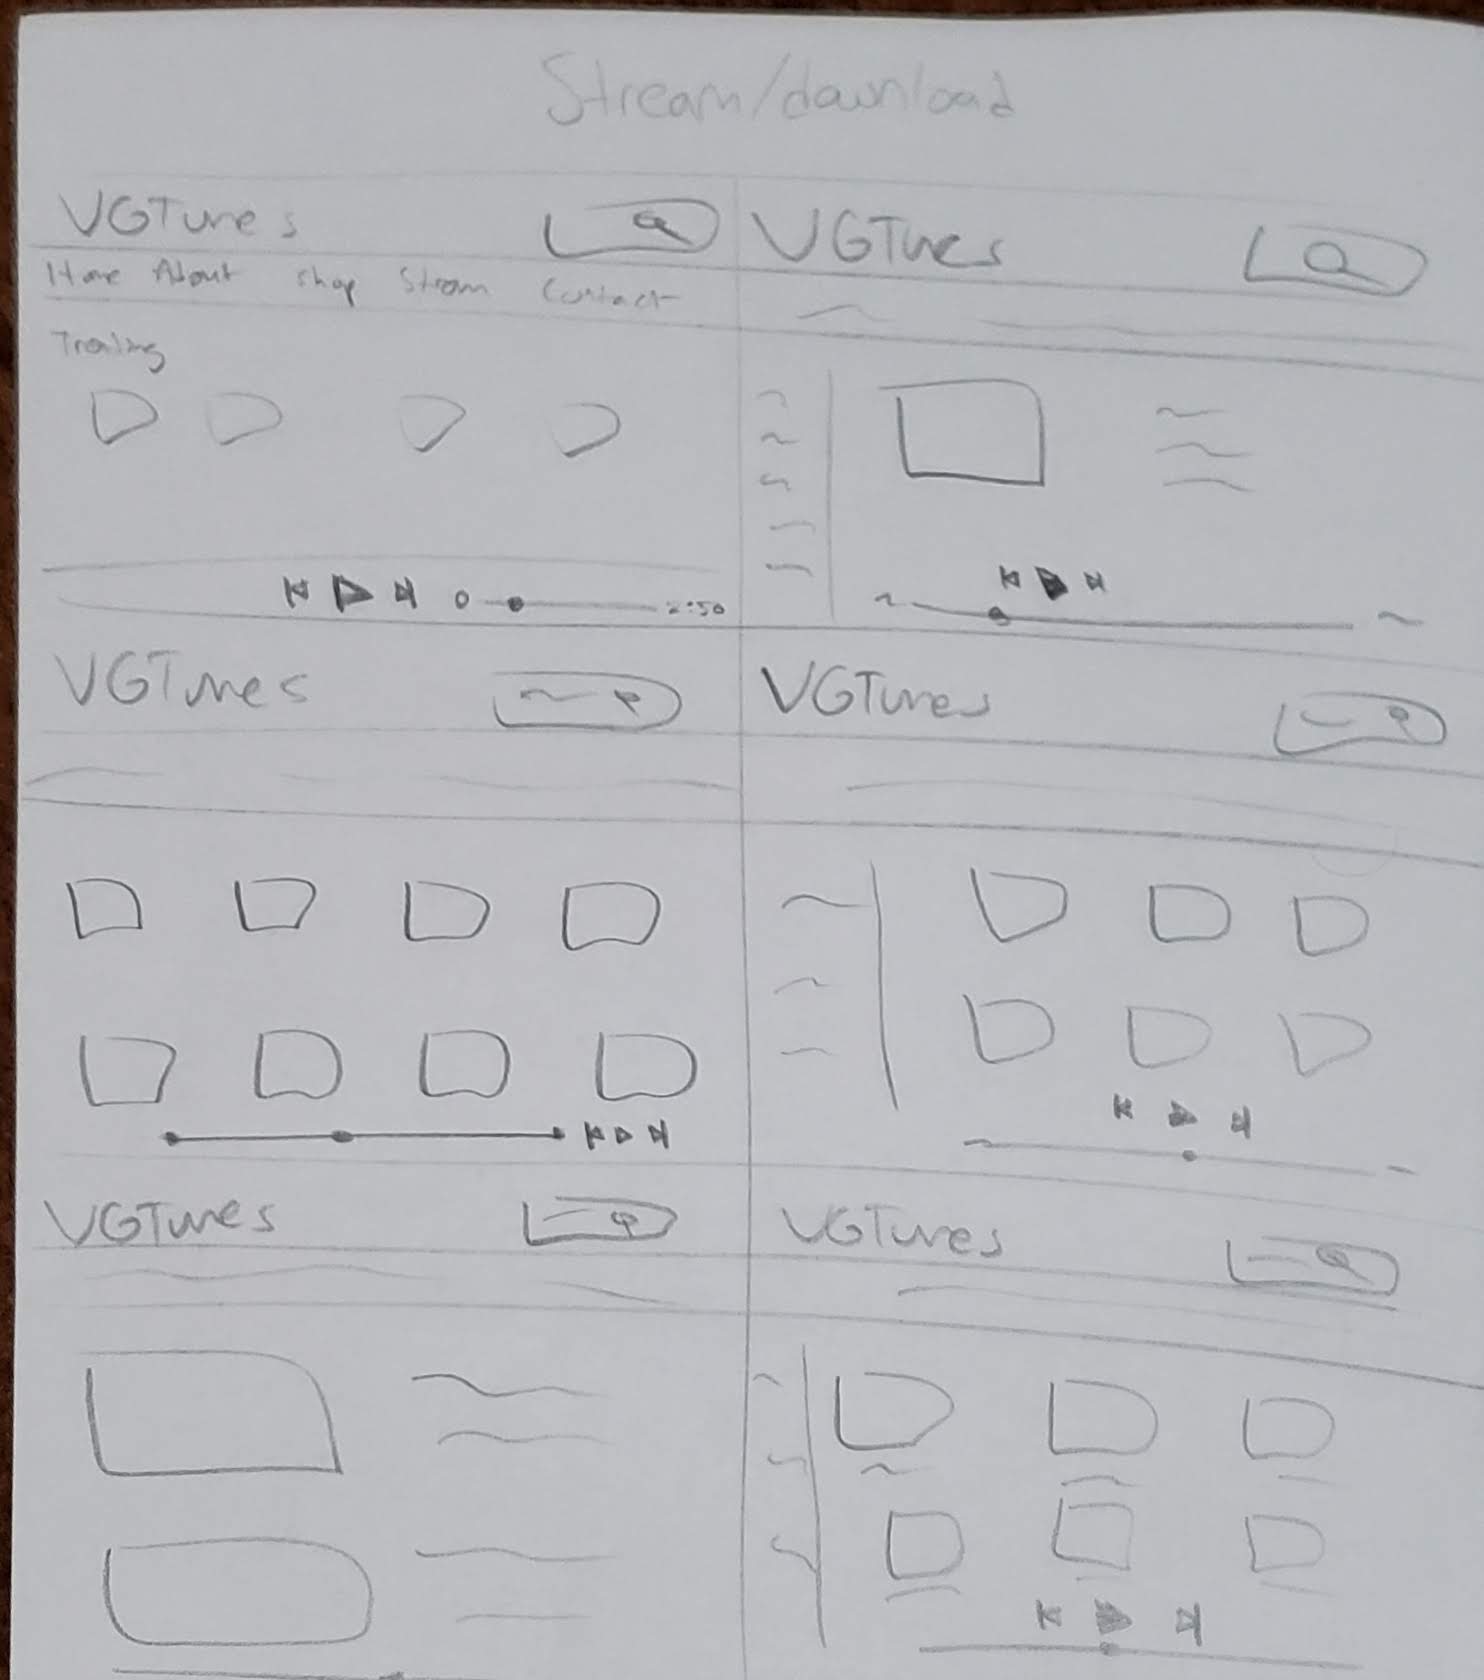 Stream/download
VGTunes
Home About Shop Stream Contact
Trending
0 2:50
VGTunes
VGTunes
VGTunes
VGTunes
VGTunes